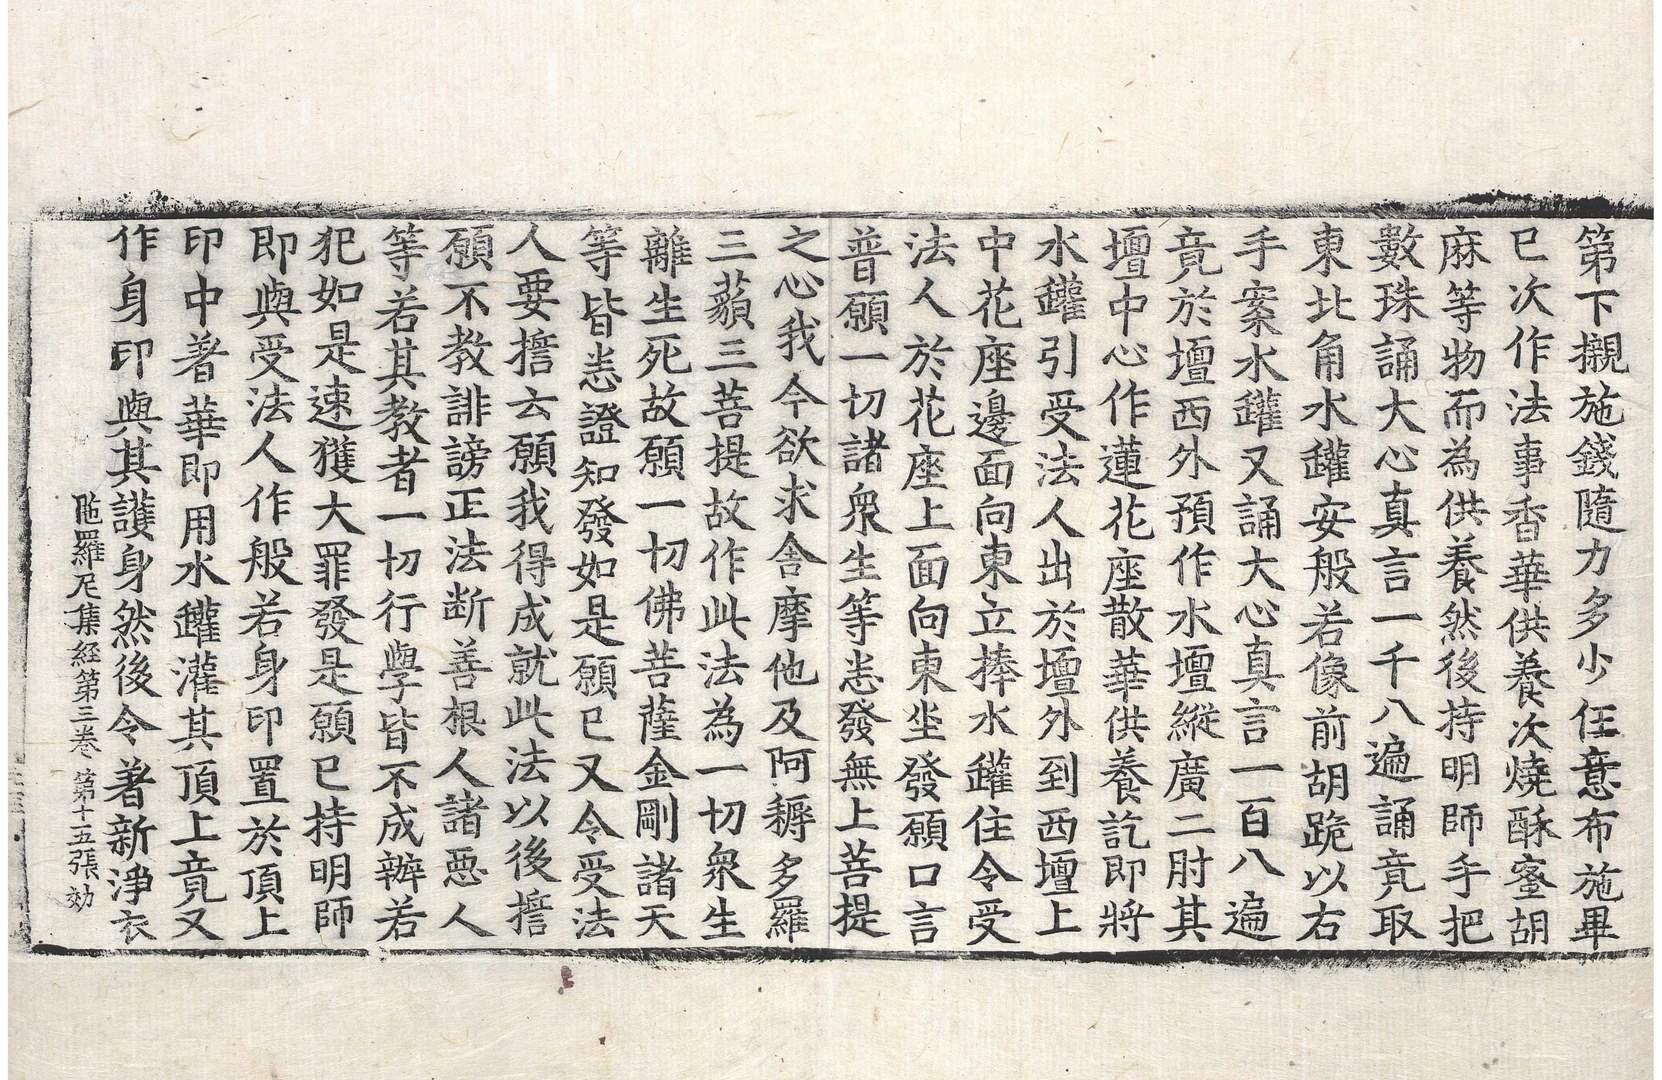 第下襯施錢隨力多少任意布施畢
已次作法事香華供養次燒酥蜜胡
麻等物而為供養然後持明師手把
數珠誦大心真言一千八遍誦竟取
東北角水罐安般若像前胡跪以右
手案水罐又誦大心真言一百八遍
竟於壇西外預作水壇縱廣二肘其
壇中心作蓮花座散華供養訖即將
水罐引受法人出於壇外到西壇上
中花座邊面向東立捧水罐住令受
法人於花座上面向東坐發願口言
普願一切諸衆生等悉發無上菩提
之心我今欲求舍摩他及阿耨多羅
三藐三菩提故作此法為一切衆生
離生死故願一切佛菩薩金剛諸天
等皆悉證知發如是願已又令受法
人要擔云願我得成就此法以後擔
願不教誹謗正法断善根人諸惡人
等若其教者一切行學皆不成辦若
犯如是速獲大罪發是願已持明師
即與受法人作般若身印置於頂上
印中著華即用水罐灌其頂上竟又
作身印與其護身然後令著新淨衣
陁羅尼集経第三巻 第十五張 効